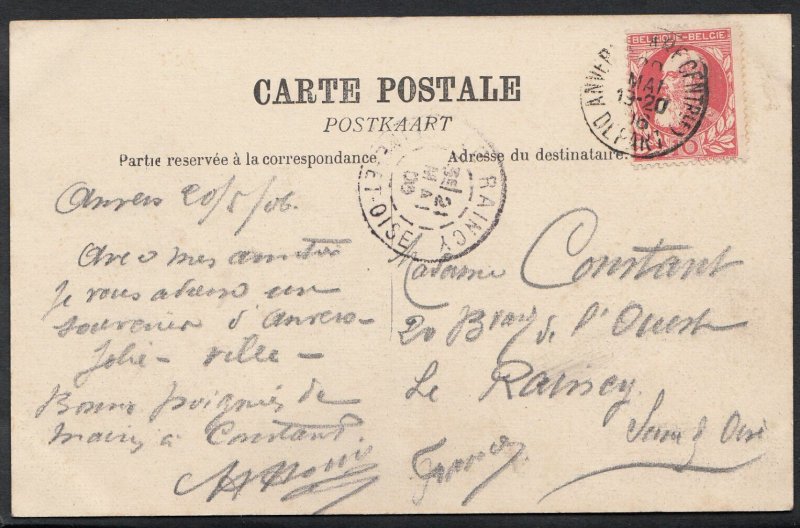 CARTE POSTALE
POSTKAART
Partie reservée à la correspondance.
Adresse du destinataire.
BELGIQUE-BELGIE
ANVERS GARE CENTRALE
MAI
19-20
DÉPART
RAINCY
21
MAI
06
ET-OISE
Anvers 20/5/06.
Avec mes amitiés
je vous adresse un
souvenir d'Anvers
Jolie - ville -
Bonne poignées de
mains à Constant.
Madame Constant
20 Bvard de l'Ouest
Le Raincy
Seine & Oise
France